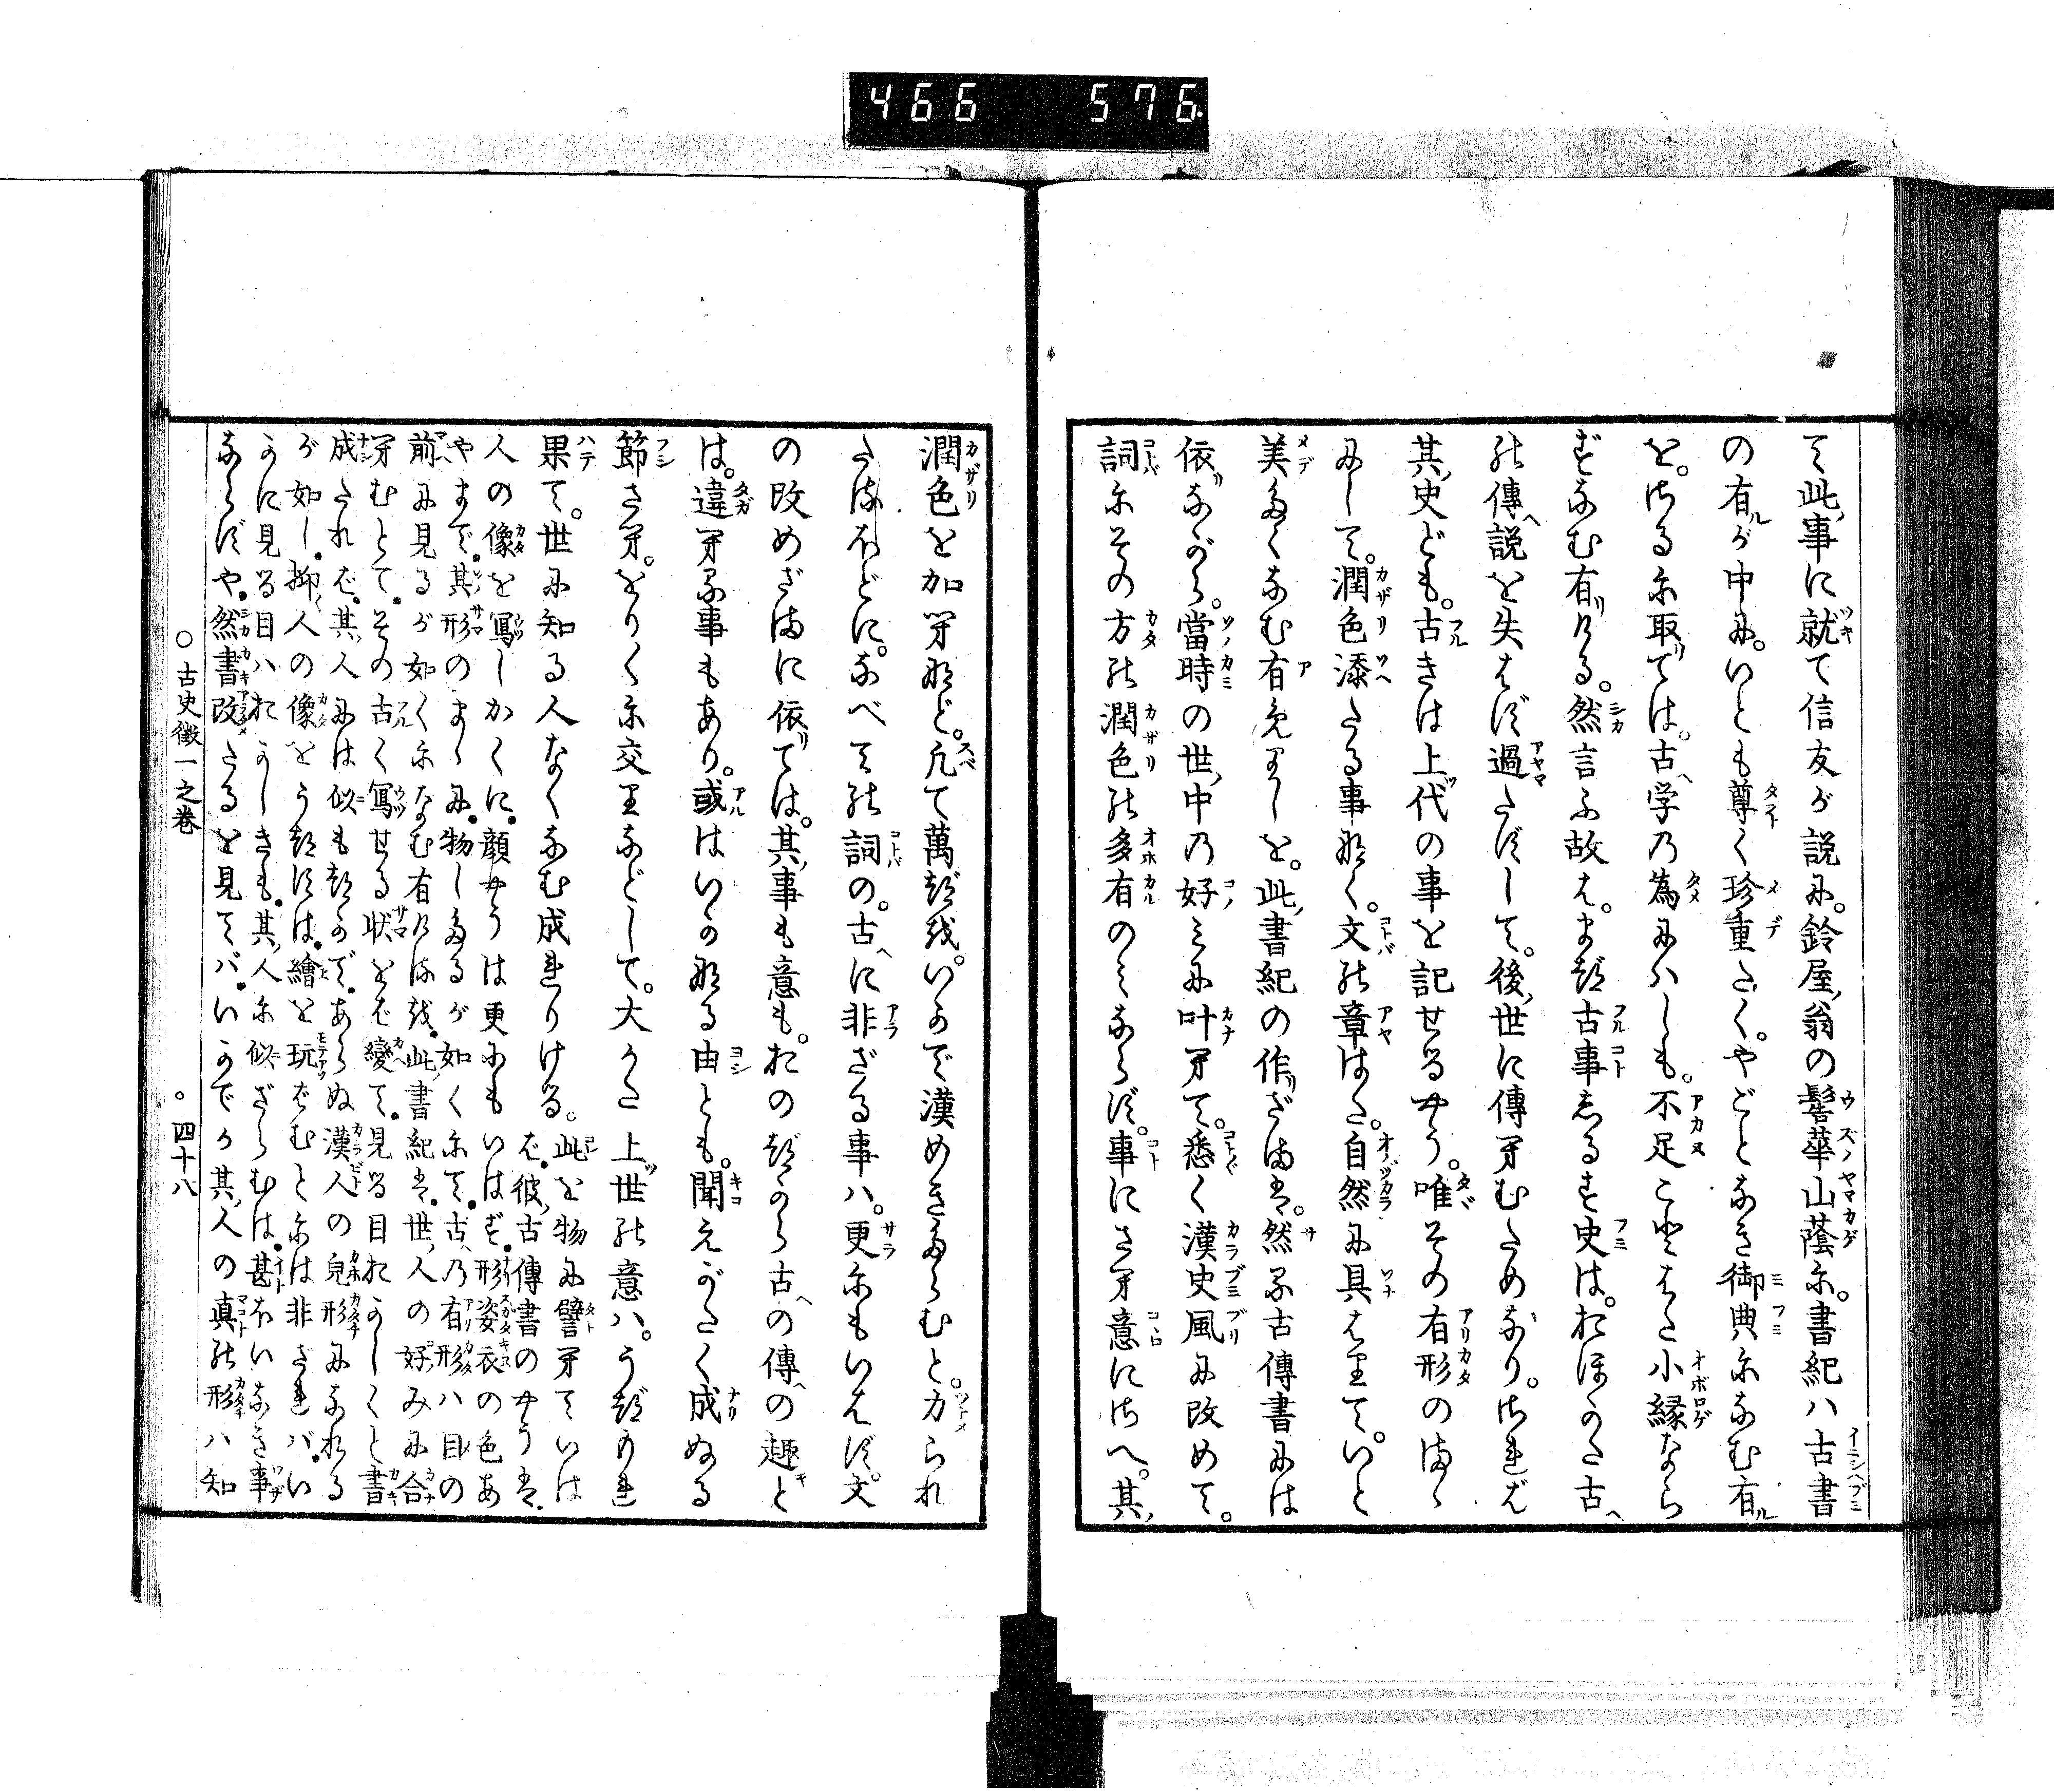 466 576
て此事に就て信友が説に。鈴屋翁の髻華山蔭に。書紀ハ古書
の有ルが中に。いとも尊く珍重たく。やごとなき御典になむ有ル
を。さるに取ては。古へ学乃為にハしも。不足こと、はた小縁なら
ずなむ有リける。然言ふ故は。まづ古事しるす史は。おほかた古へ
の傳へ説を失はず過たずして。後世に傳へむためなり。されば
其史ども。古きは上ツ代の事を記せるやう。唯その有形のまゝ
にして。潤色添たる事なく。文の章はた。自然に具はりて。いと
美たくなむ有けりしを。此書紀の作リざまは。然る古傳書には
依リながら。當時の世ノ中乃好ミに叶へて。悉く漢史風に改めて。
詞にその方の潤色の多有のミならず。事にさへ意にさへ。其
潤色を加へなど。凡て萬づを。いかで漢めきたらむと。力られ
たるほどに。なべての詞の。古へに非ざる事ハ。更にもいはず。文
の改めざまに依リては。其事も意も。おのづから古への傳への趣と
は。違へる事もあり。或はいかなる由とも。聞えがたく成ぬる
節さへ。をりくに交りなどして。大かた上ツ世の意ハ。うづもれ
果て。世に知る人なくなむ成れりける。此を物に譬へていはゞ
彼古傳書のやうは。
人の像を寫しかくに。顔やうは更にもいはず。形姿衣の色あ
やまで。其形のまゝに。物したるが如くにて。古へ乃有形ハ目の
前に見るが如くになむ有けるを。此書紀は。世ノ人の好みに合
へむとて。その古く寫せる状をば變て。見る目おかしくと書
成たれば。其人には似もつかで。あらぬ漢人の皃形になれる
が如し。抑人の像をうつすは。繪を玩ばむとには非ざれバ。い
かに見る目ハおかしきも。其人に似ざらむは。甚ほいなき事
ならずや。然書改たるを見てバ。いかでか其人の真の形ハ知
○古史徴一之巻
○四十八